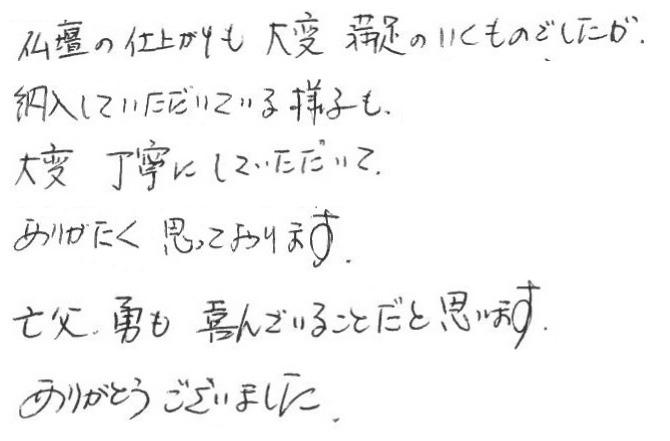 仏壇の仕上がりも 大変 満足のいくものでしたが、
納入していただいている様子も、
大変 丁寧にしていただいて、
ありがたく 思っております。
亡父、勇も 喜んでいることだと思います。
ありがとうございました。